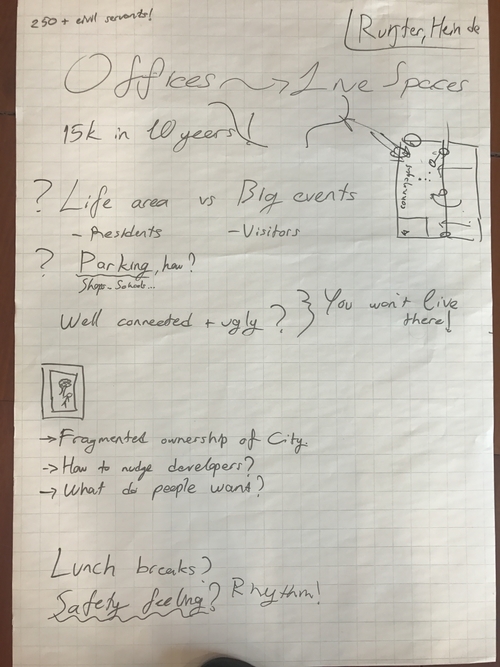 250 + civil servants!
Offices → Live Spaces
15k in 10 years!
? Life area vs Big events
- Presidents
- Visitors
? Parking, how?
Shops - Schools...
Well connected + ugly? } You won't live
there!
→ Fragmented ownership of City.
→ How to nudge developers?
→ What do people want?
Lunch breaks?
Safety feeling? Rhythm!